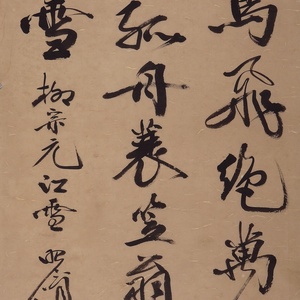 鳥飛絕萬
孤舟蓑笠翁
雪 柳宗元 江雪